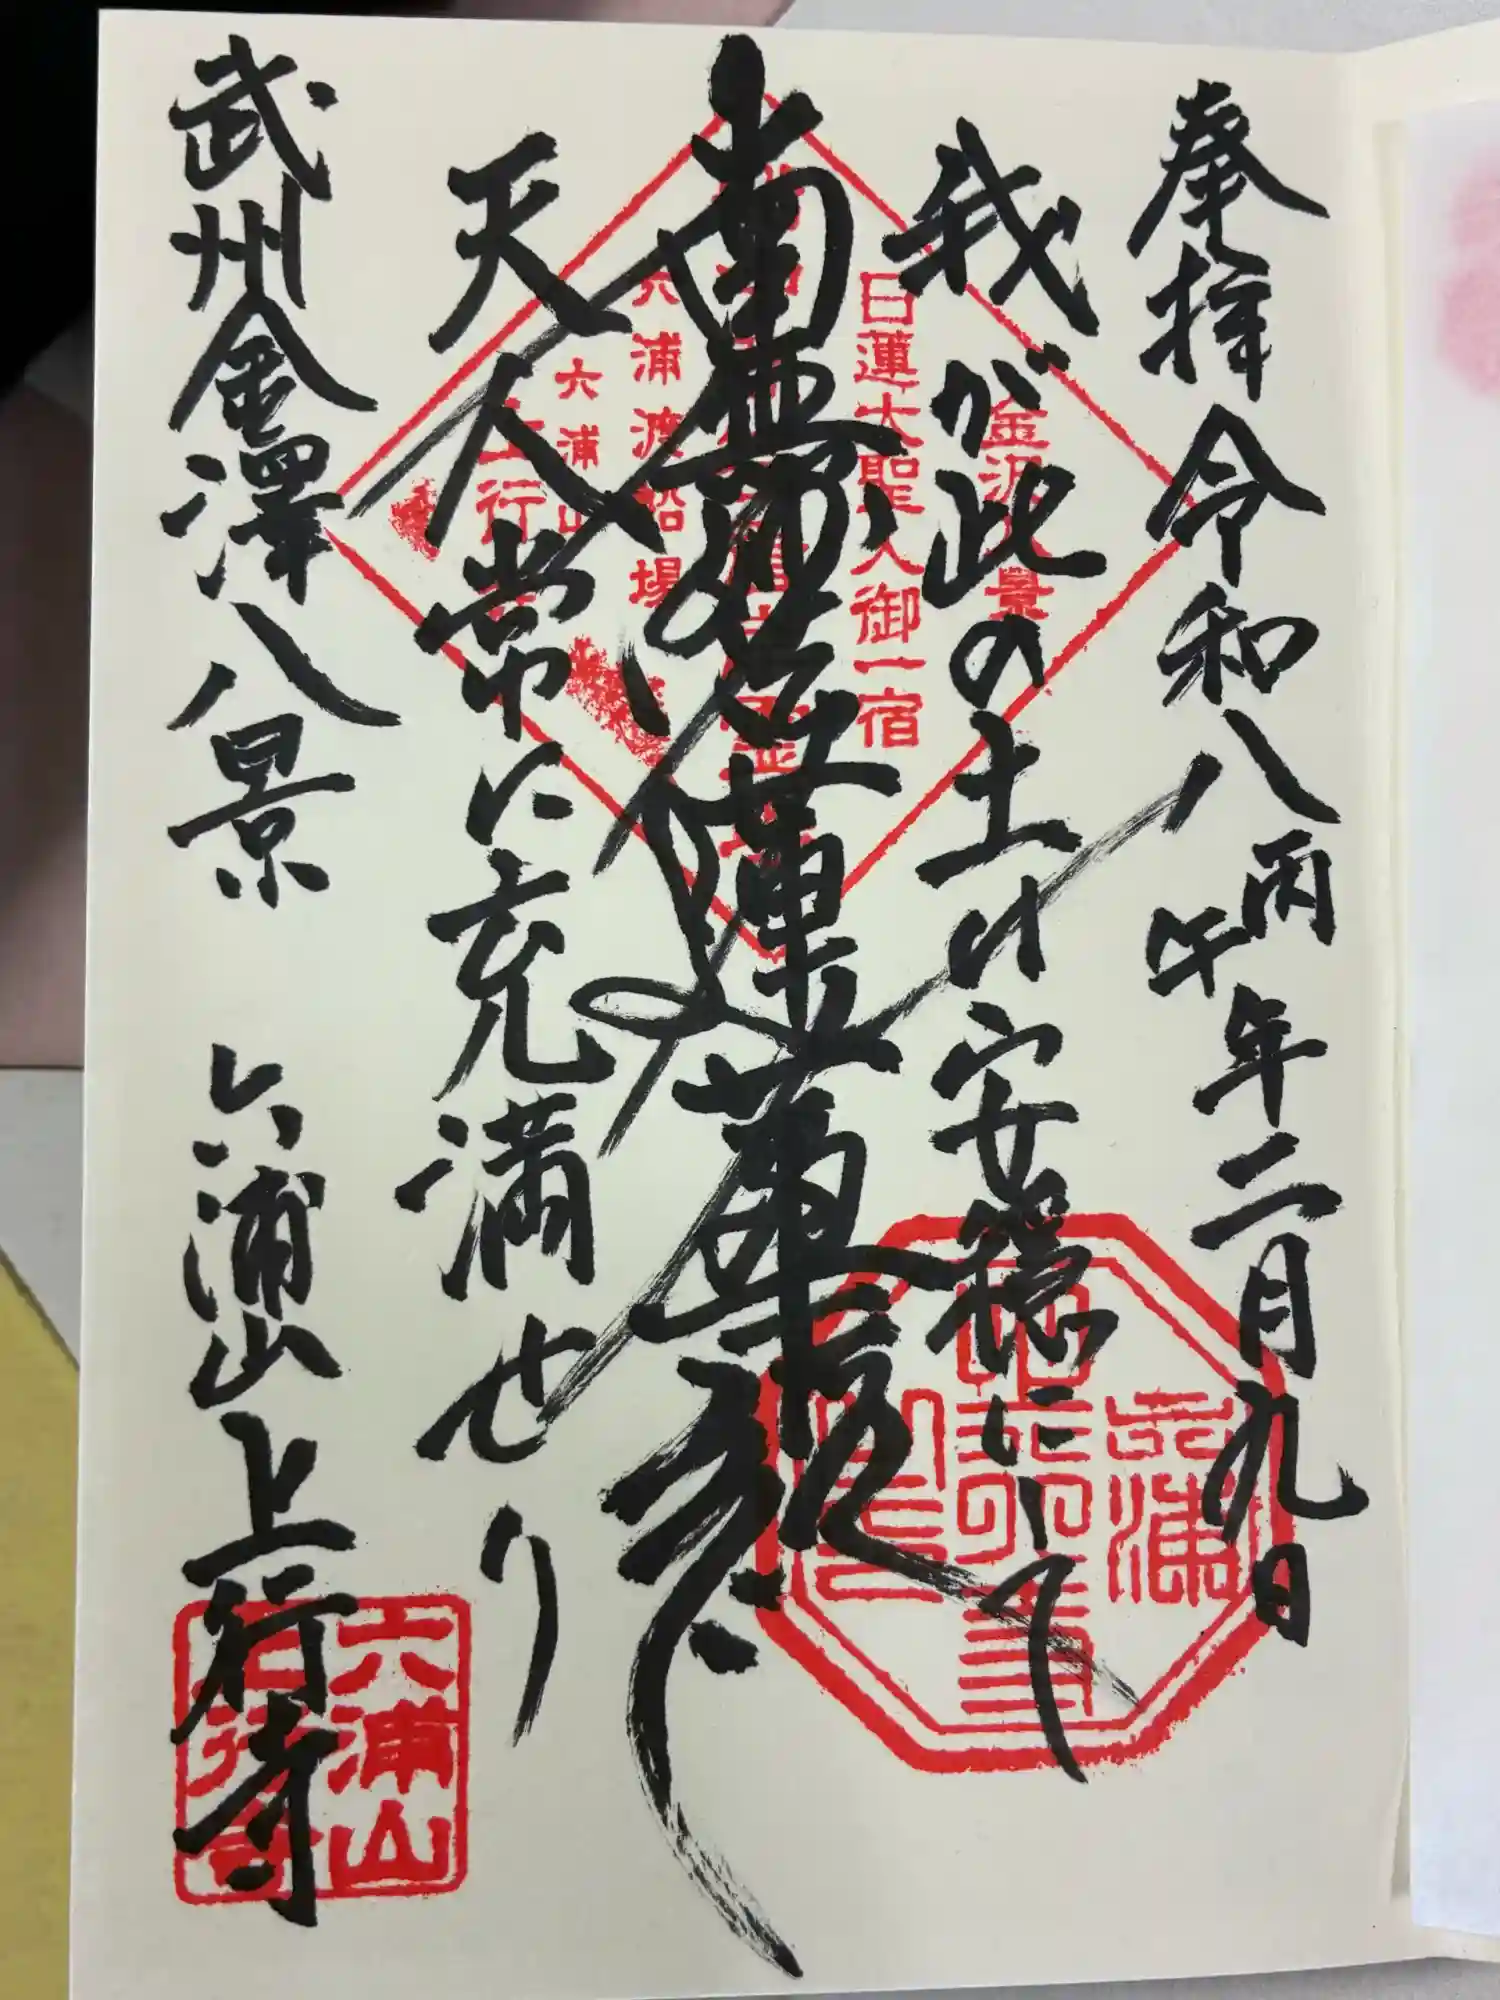 奉拝 令和八丙午年二月九日
我が此の土は安穏にして
南無妙法蓮華経
天人常に充満せり
武州金澤八景 六浦山上行寺
日蓮大聖人御一宿
六浦渡船場
六浦山
上行
六浦山
上行寺